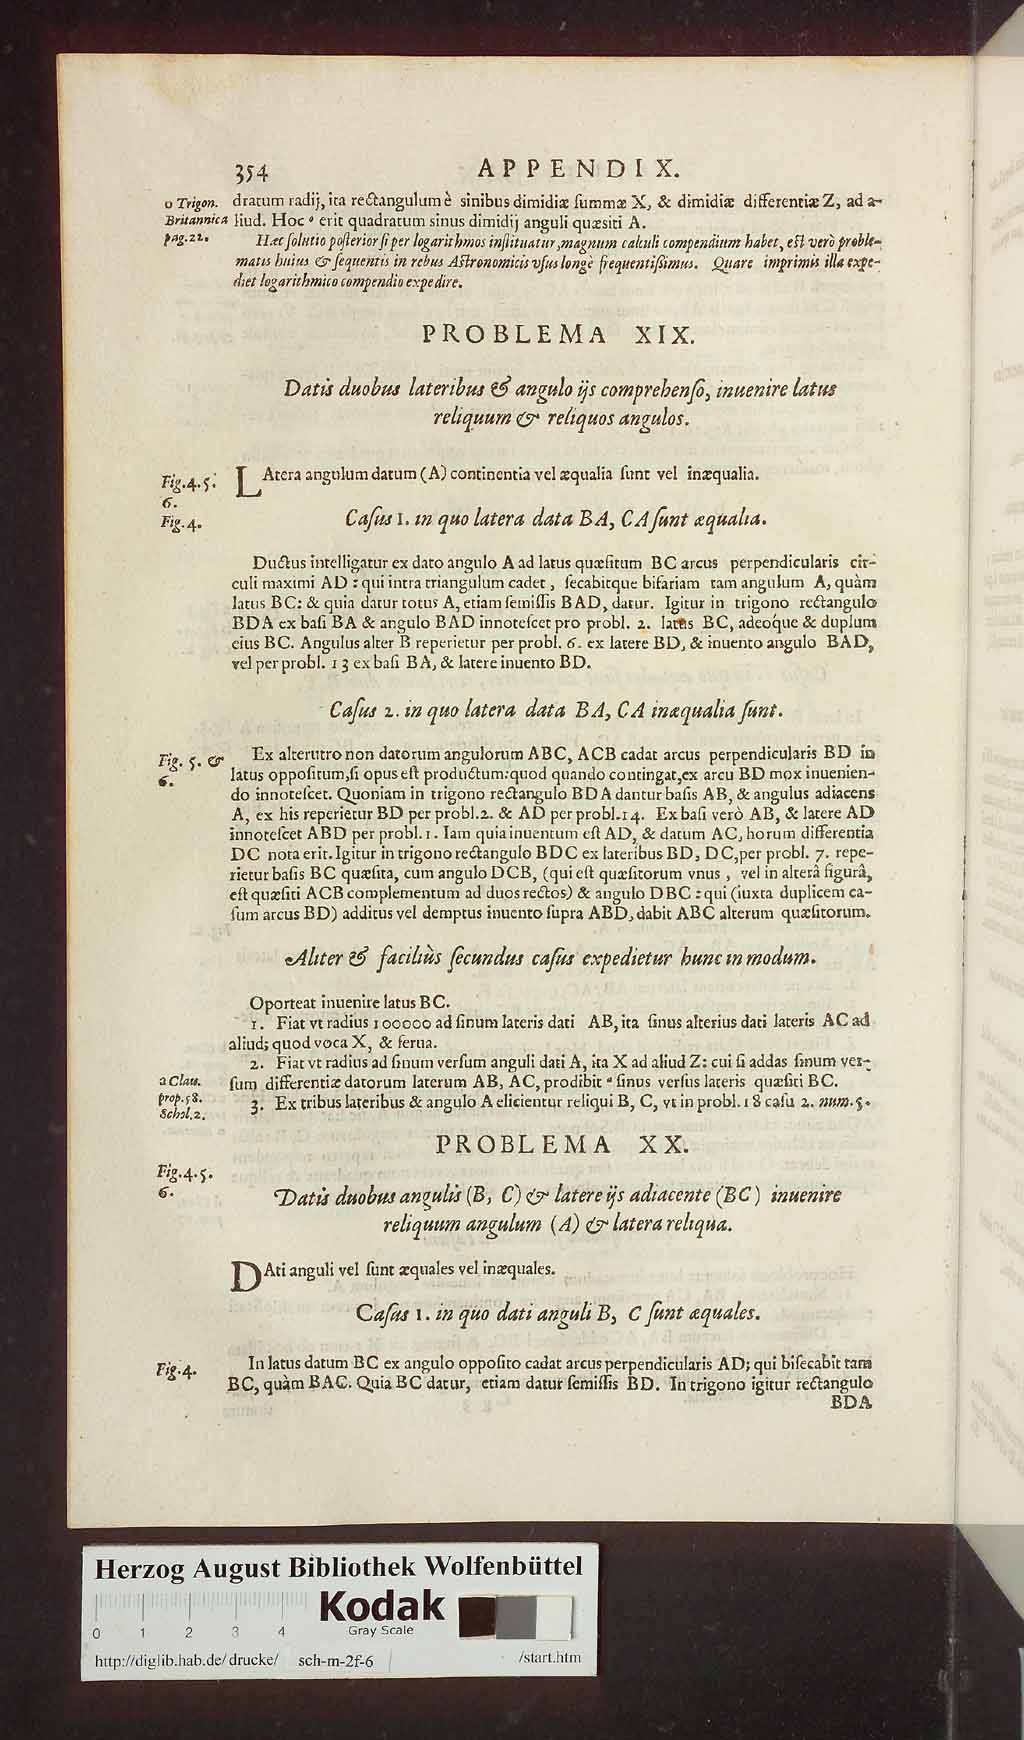 354 APPENDIX.
o Trigon. dratum radij, ita rectangulum è sinibus dimidiæ summæ X, & dimidiæ differentiæ Z, ad a-
Britannica liud. Hoc o erit quadratum sinus dimidij anguli quæsiti A.
pag.22. Hæc solutio posterior si per logarithmos instituatur, magnum calculi compendium habet, est verò proble-
matis huius & sequentis in rebus Astronomicis vsus longè frequentissimus. Quare imprimis illa expe-
diet logarithmico compendio expedire.
PROBLEMA XIX.
Datis duobus lateribus & angulo ijs comprehenso, inuenire latus
reliquum & reliquos angulos.
Fig.4.5. LAtera angulum datum (A) continentia vel æqualia sunt vel inæqualia.
6.
Fig.4. Casus 1. in quo latera data BA, CA sunt æqualia.
Ductus intelligatur ex dato angulo A ad latus quæsitum BC arcus perpendicularis cir-
culi maximi AD : qui intra triangulum cadet, secabitque bifariam tam angulum A, quàm
latus BC: & quia datur totus A, etiam semissis BAD, datur. Igitur in trigono rectangulo
BDA ex basi BA & angulo BAD innotescet pro probl. 2. latus BC, adeoque & duplum
eius BC. Angulus alter B reperietur per probl. 6. ex latere BD, & inuento angulo BAD,
vel per probl. 13 ex basi BA, & latere inuento BD.
Casus 2. in quo latera data BA, CA inæqualia sunt.
Fig. 5. & Ex alterutro non datorum angulorum ABC, ACB cadat arcus perpendicularis BD in
6. latus oppositum, si opus est productum: quod quando contingat, ex arcu BD mox inuenien-
do innotescet. Quoniam in trigono rectangulo BDA dantur basis AB, & angulus adiacens
A, ex his reperietur BD per probl.2. & AD per probl.14. Ex basi verò AB, & latere AD
innotescet ABD per probl. 1. Iam quia inuentum est AD, & datum AC, horum differentia
DC nota erit. Igitur in trigono rectangulo BDC ex lateribus BD, DC, per probl. 7. repe-
rietur basis BC quæsita, cum angulo DCB, (qui est quæsitorum vnus, vel in alterâ figurâ,
est quæsiti ACB complementum ad duos rectos) & angulo DBC : qui (iuxta duplicem ca-
sum arcus BD) additus vel demptus inuento supra ABD, dabit ABC alterum quæsitorum.
Aliter & faciliùs secundus casus expedietur hunc in modum.
Oporteat inuenire latus BC.
1. Fiat vt radius 100000 ad sinum lateris dati AB, ita sinus alterius dati lateris AC ad
aliud; quod voca X, & serua.
2. Fiat vt radius ad sinum versum anguli dati A, ita X ad aliud Z: cui si addas sinum ver-
a Clau. sum differentiæ datorum laterum AB, AC, prodibit a sinus versus lateris quæsiti BC.
prop.58. 3. Ex tribus lateribus & angulo A elicientur reliqui B, C, vt in probl. 18 casu 2. num. 5.
Schol.2.
PROBLEMA XX.
Fig.4.5.
6. Datis duobus angulis (B, C) & latere ijs adiacente (BC) inuenire
reliquum angulum (A) & latera reliqua.
DAti anguli vel sunt æquales vel inæquales.
Casus 1. in quo dati anguli B, C sunt æquales.
Fig.4. In latus datum BC ex angulo opposito cadat arcus perpendicularis AD; qui bisecabit tam
BC, quàm BAC. Quia BC datur, etiam datur semissis BD. In trigono igitur rectangulo
BDA
Herzog August Bibliothek Wolfenbüttel
Kodak
Gray Scale
0 1 2 3 4
http://diglib.hab.de/drucke/ sch-m-2f-6 /start.htm